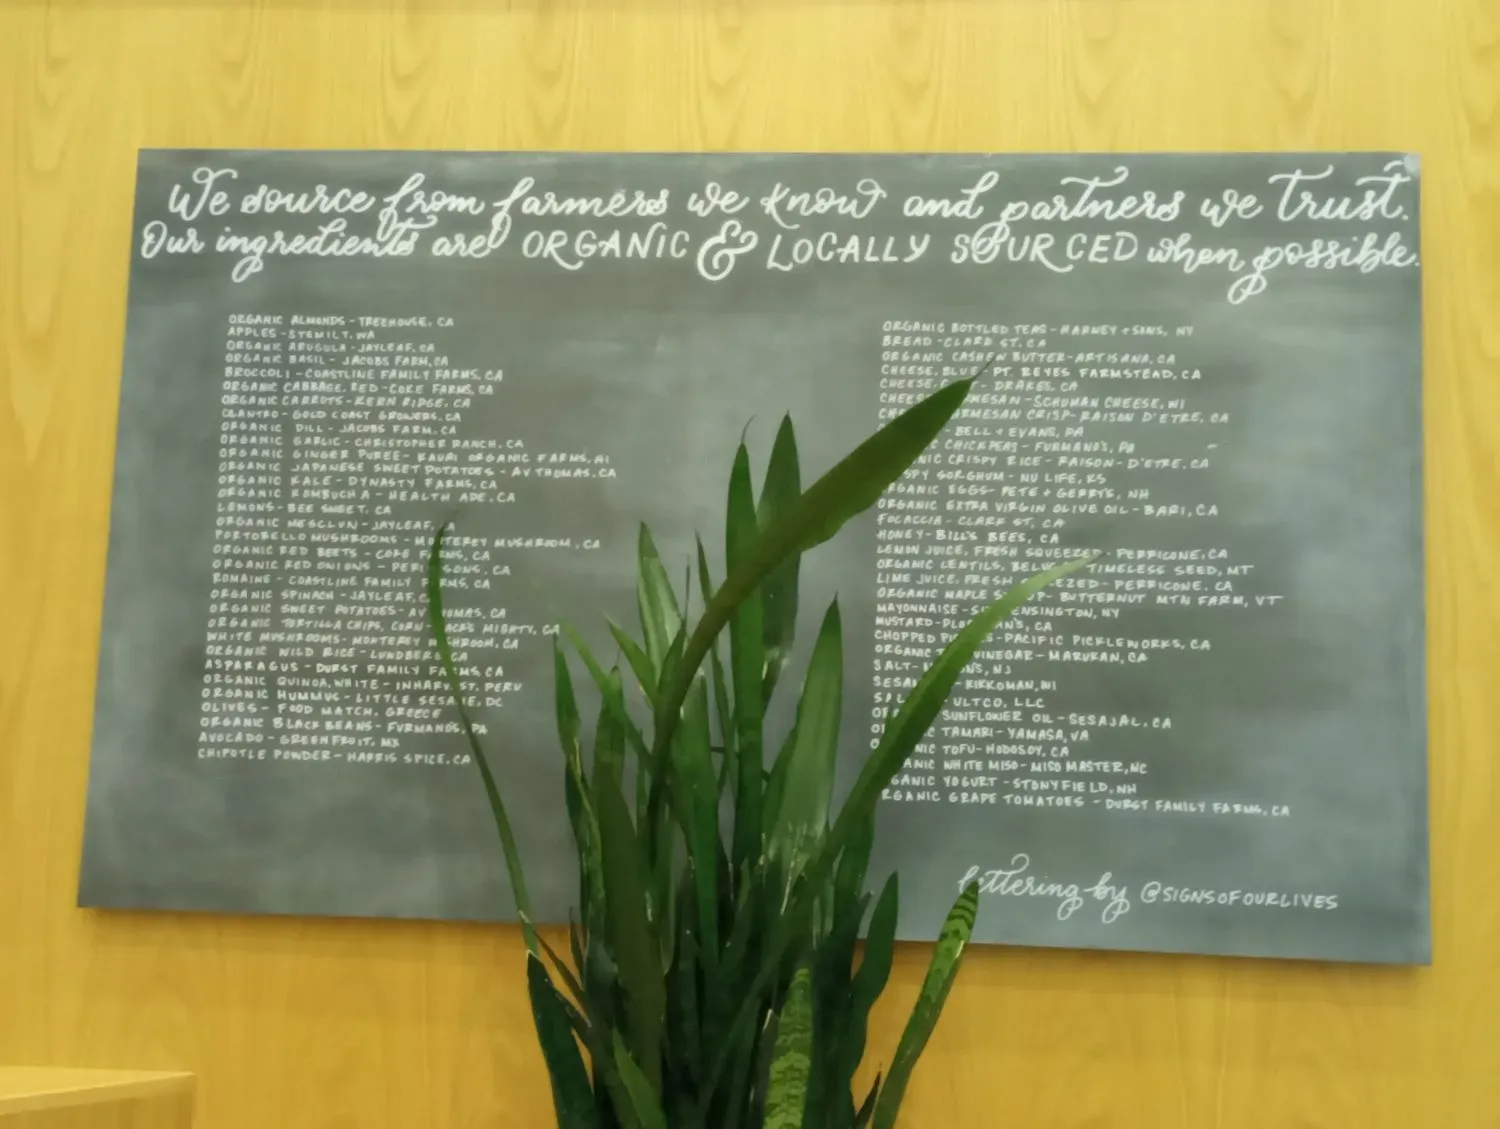 We source from farmers we know and partners we trust.
Our ingredients are ORGANIC & LOCALLY SOURCED when possible.
ORGANIC ALMONDS - TREEHOUSE, CA
APPLES - STEMILT, WA
ORGANIC ARUGULA - JAYLEAF, CA
ORGANIC BASIL - JACOBS FARM, CA
BROCCOLI - COASTLINE FAMILY FARMS, CA
ORGANIC CABBAGE, RED - COKE FARMS, CA
ORGANIC CARROTS - KERN RIDGE, CA
CILANTRO - GOLD COAST GROWERS, CA
ORGANIC DILL - JACOBS FARM, CA
ORGANIC GARLIC - CHRISTOPHER RANCH, CA
ORGANIC GINGER PUREE - KAUAI ORGANIC FARMS, HI
ORGANIC JAPANESE SWEET POTATOES - AV THOMAS, CA
ORGANIC KALE - DYNASTY FARMS, CA
ORGANIC KOMBUCHA - HEALTH ADE, CA
LEMONS - BEE SWEET, CA
ORGANIC MESCLUN - JAYLEAF, CA
PORTOBELLO MUSHROOMS - MONTEREY MUSHROOM, CA
ORGANIC RED BEETS - COKE FARMS, CA
ORGANIC RED ONIONS - PERI SONS, CA
ROMAINE - COASTLINE FAMILY FARMS, CA
ORGANIC SPINACH - JAYLEAF, C
ORGANIC SWEET POTATOES - AV THOMAS, CA
ORGANIC TORTILLA CHIPS, CORN - JACK'S MIGHTY, CA
WHITE MUSHROOMS - MONTEREY MUSHROOM, CA
ORGANIC WILD RICE - LUNDBERG, CA
ASPARAGUS - DURST FAMILY FARMS, CA
ORGANIC QUINOA, WHITE - INHARVEST, PERU
ORGANIC HUMMUS - LITTLE SESAME, DC
OLIVES - FOOD MATCH, GREECE
ORGANIC BLACK BEANS - FURMANOS, PA
AVOCADO - GREENFRUIT, MX
CHIPOTLE POWDER - HARRIS SPICE, CA
ORGANIC BOTTLED TEAS - HARNEY + SONS, NY
BREAD - CLARK ST, CA
ORGANIC CASHEW BUTTER - ARTISANA, CA
CHEESE, BLUE PT. REYES FARMSTEAD, CA
CHEESE, - DRAKES, CA
CHEESE PARMESAN - SCHUMAN CHEESE, WI
PARMESAN CRISP - RAISON D'ETRE, CA
- BELL + EVANS, PA
CHICKPEAS - FURMANO'S, PA
ORGANIC CRISPY RICE - RAISON - D'ETRE, CA
CRISPY SORGHUM - NU LIFE, KS
ORGANIC EGGS - PETE + GERRYS, NH
ORGANIC EXTRA VIRGIN OLIVE OIL - BARI, CA
FOCACCIA - CLARK ST, CA
HONEY - BILL'S BEES, CA
LEMON JUICE, FRESH SQUEEZED - PERRICONE, CA
ORGANIC LENTILS, TIMELESS SEED, MT
LIME JUICE, FRESH SQUEEZED - PERRICONE, CA
ORGANIC MAPLE SYRUP - BUTTERNUT MTN FARM, VT
MAYONNAISE - SIR KENSINGTON, NY
MUSTARD - PLOCHMAN'S, CA
CHOPPED PICKLES - PACIFIC PICKLEWORKS, CA
ORGANIC VINEGAR - MARUKAN, CA
SALT - NJ
- KIKKOMAN, WI
LLC
SUNFLOWER OIL - SESAJAL, CA
TAMARI - YAMASA, VA
ORGANIC TOFU - HODOSOY, CA
ORGANIC WHITE MISO - MISO MASTER, NC
ORGANIC YOGURT - STONYFIELD, NH
ORGANIC GRAPE TOMATOES - DURST FAMILY FARMS, CA
lettering by @SIGNSOFOURLIVES